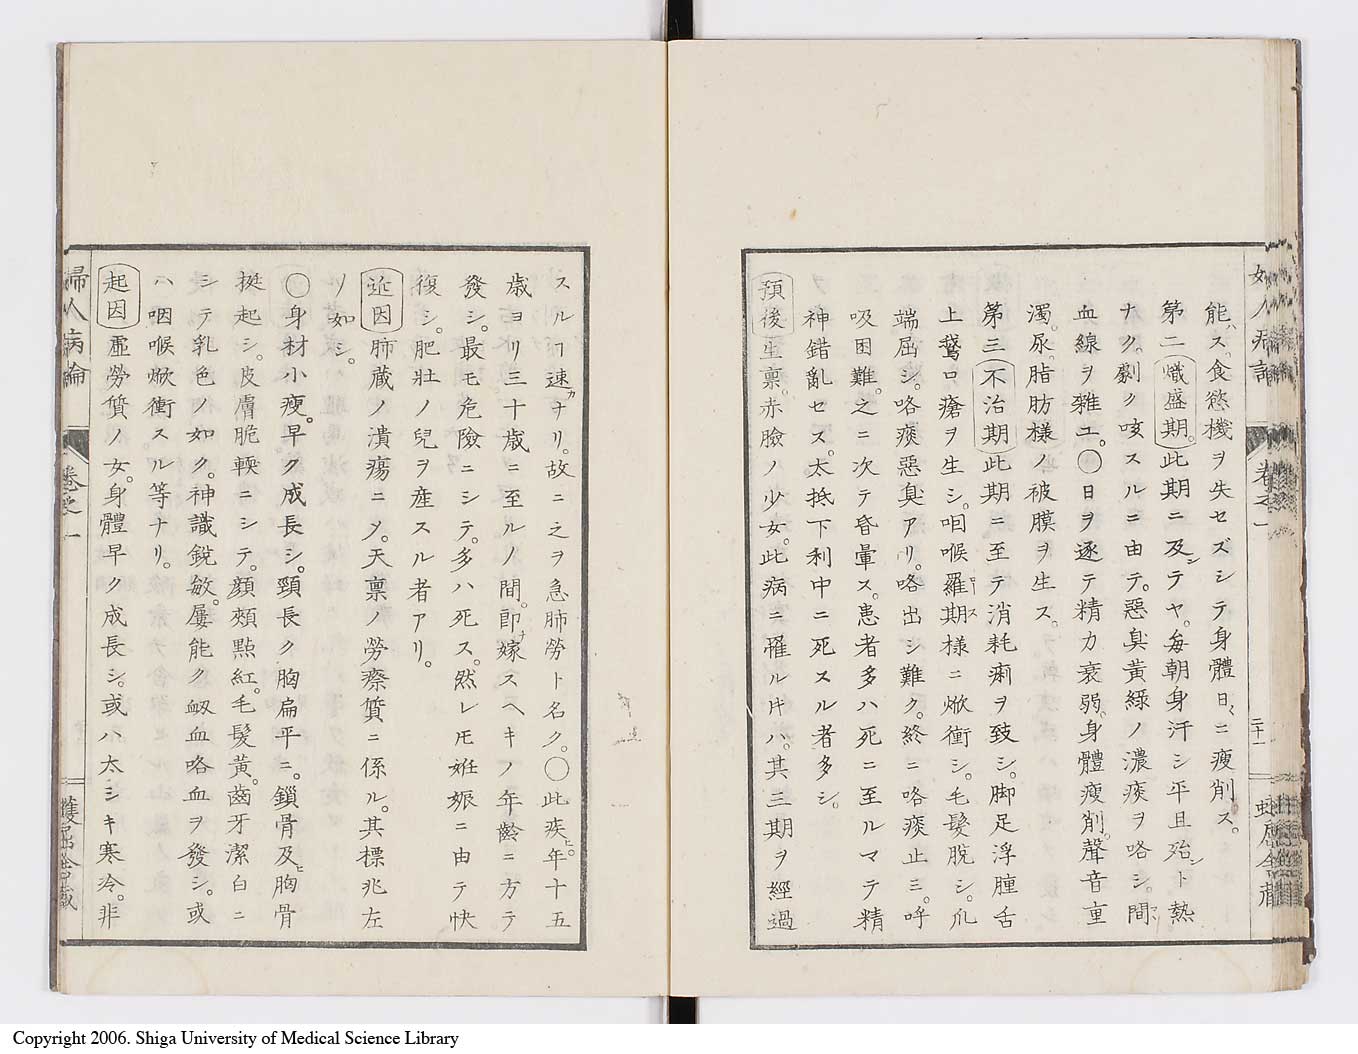 能ハス。食慾機ヲ失セズシテ身體日々ニ瘦削ス。
第二熾盛期。此期ニ及テヤ。每朝身汗シ平旦殆ント熱
ナク。劇ク咳スルニ由テ。惡臭黃綠ノ濃痰ヲ咯シ。間
血線ヲ雜ユ。〇日ヲ逐テ精力衰弱。身體瘦削。聲音重
濁。尿。脂肪樣ノ被膜ヲ生ス。
第三不治期此期ニ至テ消耗痢ヲ致シ。脚足浮腫舌
上鵞口瘡ヲ生シ。咽喉羅斯樣ニ焮衝シ。毛髮脫シ。爪
端屈シ。咯痰惡臭アリ。咯出シ難ク。終ニ咯痰止ミ。呼
吸困難。之ニ次テ昏暈ス。患者多ハ死ニ至ルマテ精
神錯亂セス。太抵下利中ニ死スル者多シ。
預後生稟。赤臉ノ少女。此病ニ罹ル片ハ。其三期ヲ經過
スルヿ速カナリ。故ニ之ヲ急肺勞ト名ク。〇此疾ヒ。年十五
歲ヨリ三十歲ニ至ルノ間。卽チ嫁スヘキノ年齡ニ方テ
發シ。最モ危險ニシテ。多ハ死ス。然レ𪜈姙娠ニ由テ快
復シ。肥壯ノ兒ヲ產スル者アリ。
近因肺藏ノ潰瘍ニメ。天稟ノ勞瘵質ニ係ル。其標兆左
ノ如シ。
〇身材小瘦。早ク成長シ。頸長ク胸扁平ニ。鎖骨及ヒ胸骨
挺起シ。皮膚脆輭ニシテ。顏頰點紅。毛髮黃。齒牙潔白ニ
シテ乳色ノ如ク。神識銳敏。屢能ク衂血咯血ヲ發シ。或
ハ咽喉焮衝スル等ナリ。
起因虛勞質ノ女。身體早ク成長シ。或ハ太シキ寒冷。非
婦人病論
卷之一
Copyright 2006. Shiga University of Medical Science Library